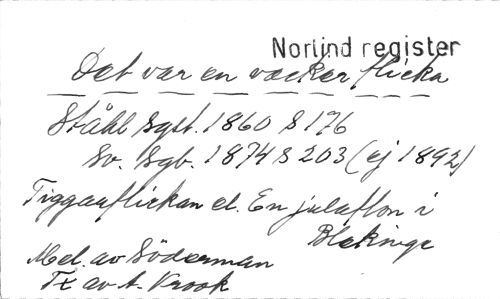 Norlind register
Det var en vacker flicka
Ståhl Sgst. 1860 S 176
Sv. Sgb. 1874 S 203 (ej 1892)
Tiggarflickan el. En julafton i
Blekinge
Mel. av Söderman
Tx av A. Krook